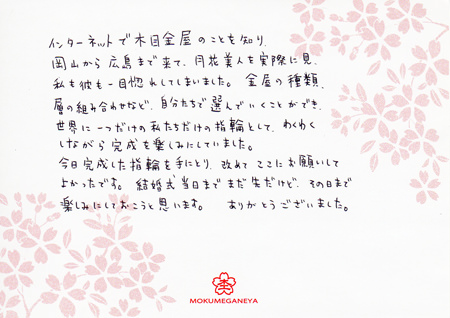 インターネットで木目金屋のことを知り、
岡山から広島まで来て、月花美人を実際に見、
私も彼も一目惚れしてしまいました。金属の種類、
層の組み合わせなど、自分たちで選んでいくことができ、
世界に一つだけの私たちだけの指輪として、わくわく
しながら完成を楽しみにしていました。
今日完成した指輪を手にとり、改めてここにお願いして
よかったです。結婚式当日までまだ先だけど、その日まで
楽しみにしておこうと思います。 ありがとうございました。
MOKUMEGANEYA